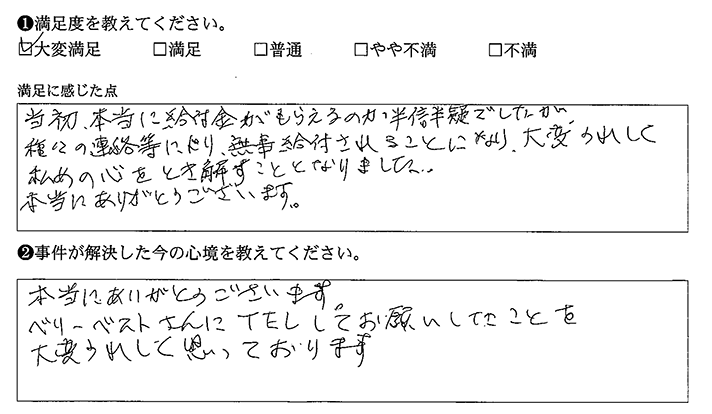 ❶満足度を教えてください。
☑大変満足 □満足 □普通 □やや不満 □不満
満足に感じた点
当初、本当に給付金がもらえるのか半信半疑でしたが、
種々の連絡等により、無事給付されることになり、大変うれしく
私めの心をとき解すこととなりました。
本当にありがとうございます。
❷事件が解決した今の心境を教えてください。
本当にありがとうございます。
ベリーベストさんにTELしてお願いしたことを
大変うれしく思っております